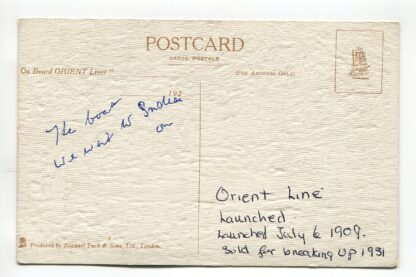 POSTCARD
CARTE POSTALE
On Board ORIENT Liner "
(FOR ADDRESS ONLY)
192
The boat
we went to India
on
Orient Line
Launched
Launched July 6 1909.
Sold for breaking up 1931
Produced by Raphael Tuck & Sons, Ltd., London.